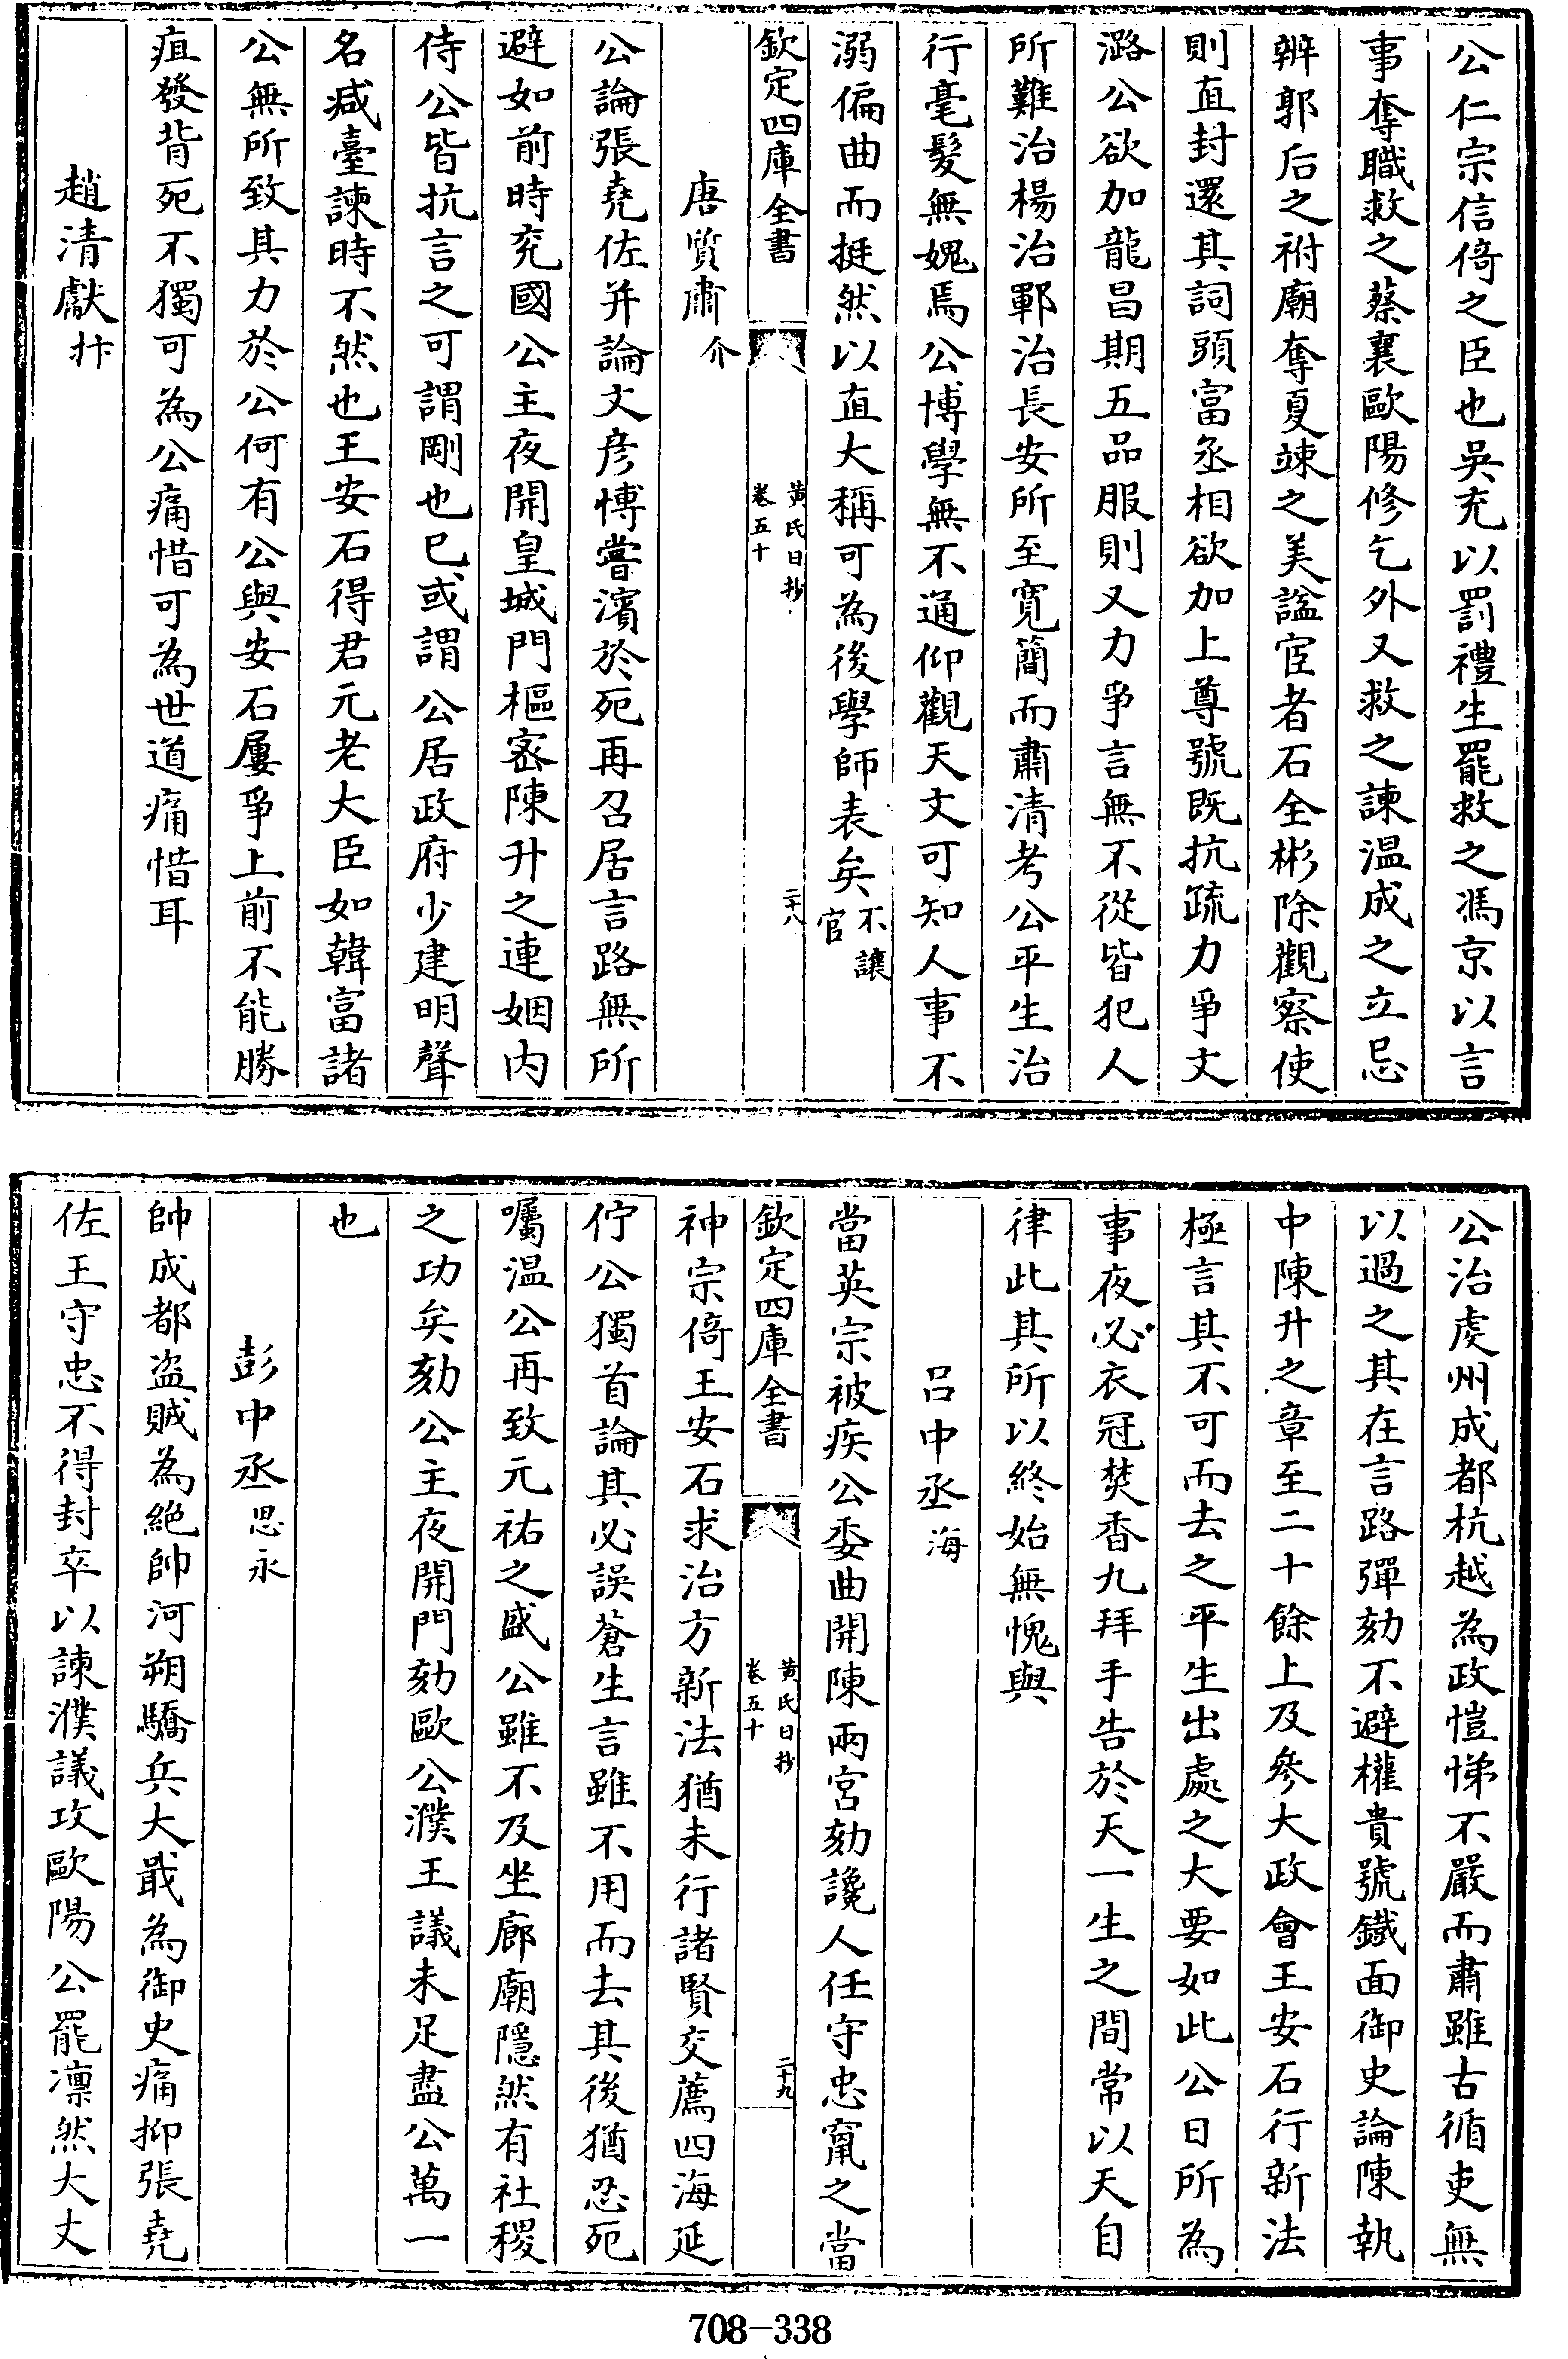 公仁宗信倚之臣也吳充以罰禮生罷救之馮京以言
事奪職救之蔡襄歐陽修乞外又救之諫温成之立忌
辨郭后之祔廟奪夏竦之美諡宦者石全彬除觀察使
則直封還其詞頭富丞相欲加上尊號既抗疏力爭文
潞公欲加龍昌期五品服則又力爭言無不從皆犯人
所難治楊治鄆治長安所至寛簡而肅清考公平生治
行毫髮無媿焉公博學無不通仰觀天文可知人事不
溺偏曲而挺然以直大稱可為後學師表矣不讓官
欽定四庫全書
黄氏日抄
卷五十
二十八
唐質肅介
公論張堯佐并論文彦博嘗濱於死再召居言路無所
避如前時兖國公主夜開皇城門樞密陳升之連姻内
侍公皆抗言之可謂剛也已或謂公居政府少建明聲
名减臺諫時不然也王安石得君元老大臣如韓富諸
公無所致其力於公何有公與安石屢爭上前不能勝
疽發背死不獨可為公痛惜可為世道痛惜耳
趙清獻抃
公治虔州成都杭越為政愷悌不嚴而肅雖古循吏無
以過之其在言路彈劾不避權貴號鐵面御史論陳執
中陳升之章至二十餘上及參大政會王安石行新法
極言其不可而去之平生出處之大要如此公日所為
事夜必衣冠焚香九拜手告於天一生之間常以天自
律此其所以終始無愧與
吕中丞海
當英宗被疾公委曲開陳兩宮劾讒人任守忠竄之當
欽定四庫全書
黄氏日抄
卷五十
二十九
神宗倚王安石求治方新法猶未行諸賢交薦四海延
佇公獨首論其必誤蒼生言雖不用而去其後猶忍死
囑温公再致元祐之盛公雖不及坐廊廟隱然有社稷
之功矣劾公主夜開門劾歐公濮王議未足盡公萬一
也
彭中丞思永
帥成都盗賊為絶帥河朔驕兵大戢為御史痛抑張堯
佐王守忠不得封卒以諫濮議攻歐陽公罷凛然大丈
708-338